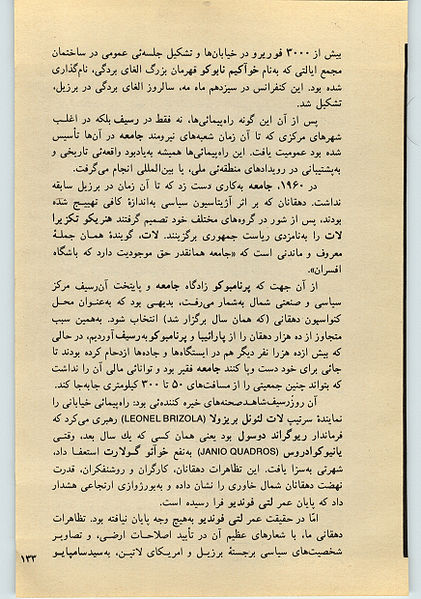 بیش از ۳۰۰۰ فوریرو در خیابان‌ها و تشکیل جلسه‌ئی عمومی در ساختمان
مجمع ایالتی که به‌نام خوآکیم نابوکو قهرمان بزرگ الغای بردگی، نام‌گذاری
شده بود. این کنفرانس در سیزدهم ماه مه، سالروز الغای بردگی در برزیل،
تشکیل شد.
پس از آن این گونه راه‌پیمائی‌ها، نه فقط در رسیف بلکه در اغلب
شهرهای مرکزی که تا آن زمان شعبه‌های نیرومند جامعه در آن‌ها تأسیس
شده بود عمومیت یافت. این راه‌پیمائی‌ها همیشه به‌یادبود واقعه‌ئی تاریخی و
به‌پشتیبانی در رویدادهای منطقه‌ئی ملی، یا بین‌المللی انجام می‌گرفت.
در ۱۹۶۰، جامعه به‌کاری دست زد که تا آن زمان در برزیل سابقه
نداشت. دهقانان که بر اثر آژیتاسیون سیاسی به‌اندازهٔ کافی تهییج شده
بودند، پس از شور در گروه‌های مختلف خود تصمیم گرفتند هنریکو تکزیرا
لات را به‌نامزدی ریاست جمهوری برگزینند. لات، گویندهٔ همان جملهٔ
معروف و ماندنی است که «جامعه همانقدر حق موجودیت دارد که باشگاه
افسران».
از آن جهت که پرنامبوکو زادگاه جامعه و پایتخت آن‌رسیف مرکز
سیاسی و صنعتی شمال به‌شمار می‌رفت، بدیهی بود که به‌عنوان محل
کنواسیون دهقانی (که همان سال برگزار شد) انتخاب شود. به‌همین سبب
متجاوز از ده هزار دهقان را از پارائیبا و پرنامبوکو به‌رسیف آوردیم، در حالی
که بیش ازده هزرا نفر دیگر هم در ایستگاه‌ها و جاده‌ها ازدحام کرده بودند تا
جائی برای خود دست وپا کنند جامعه فقیر بود و توانائی مالی آن را نداشت
که بتواند چنین جمعیتی را از مسافت‌های ۵۰ تا ۳۰۰ کیلومتری جابه‌جا کند.
آن روز‌رسیف شاهد‌صحنه‌های خیره کننده‌ئی بود: راه‌پیمائی خیابانی را
نمایندهٔ سرتیپ لات لئونل بریزولا (LEONEL BRIZOLA) رهبری می‌کرد که
فرماندار ریوگراند دوسول بود یعنی همان کسی که یك سال بعد، وقتی
یانیوکوادروس (JANIO QUADROS) به‌نفع خوآئو گولارت استعفا داد،
شهرتی به‌سزا یافت. این تظاهرات دهقانان، کارگران و روشنفکران، قدرت
نهضت دهقانان شمال خاوری را نشان داده و به‌بورژوازی ارتجاعی هشدار
داد که پایان عمر لتی فوندیو فرا رسیده است.
امّا در حقیقت عمر لتی فوندیو به‌هیچ وجه پایان نیافته بود. تظاهرات
دهقانی ما، با شعارهای عظیم آن در تأیید اصلاحات ارضی، و تصاویر
شخصیت‌های سیاسی برجستهٔ برزیل و امریکای لاتین، به‌سید‌سامپایو
۱۳۳